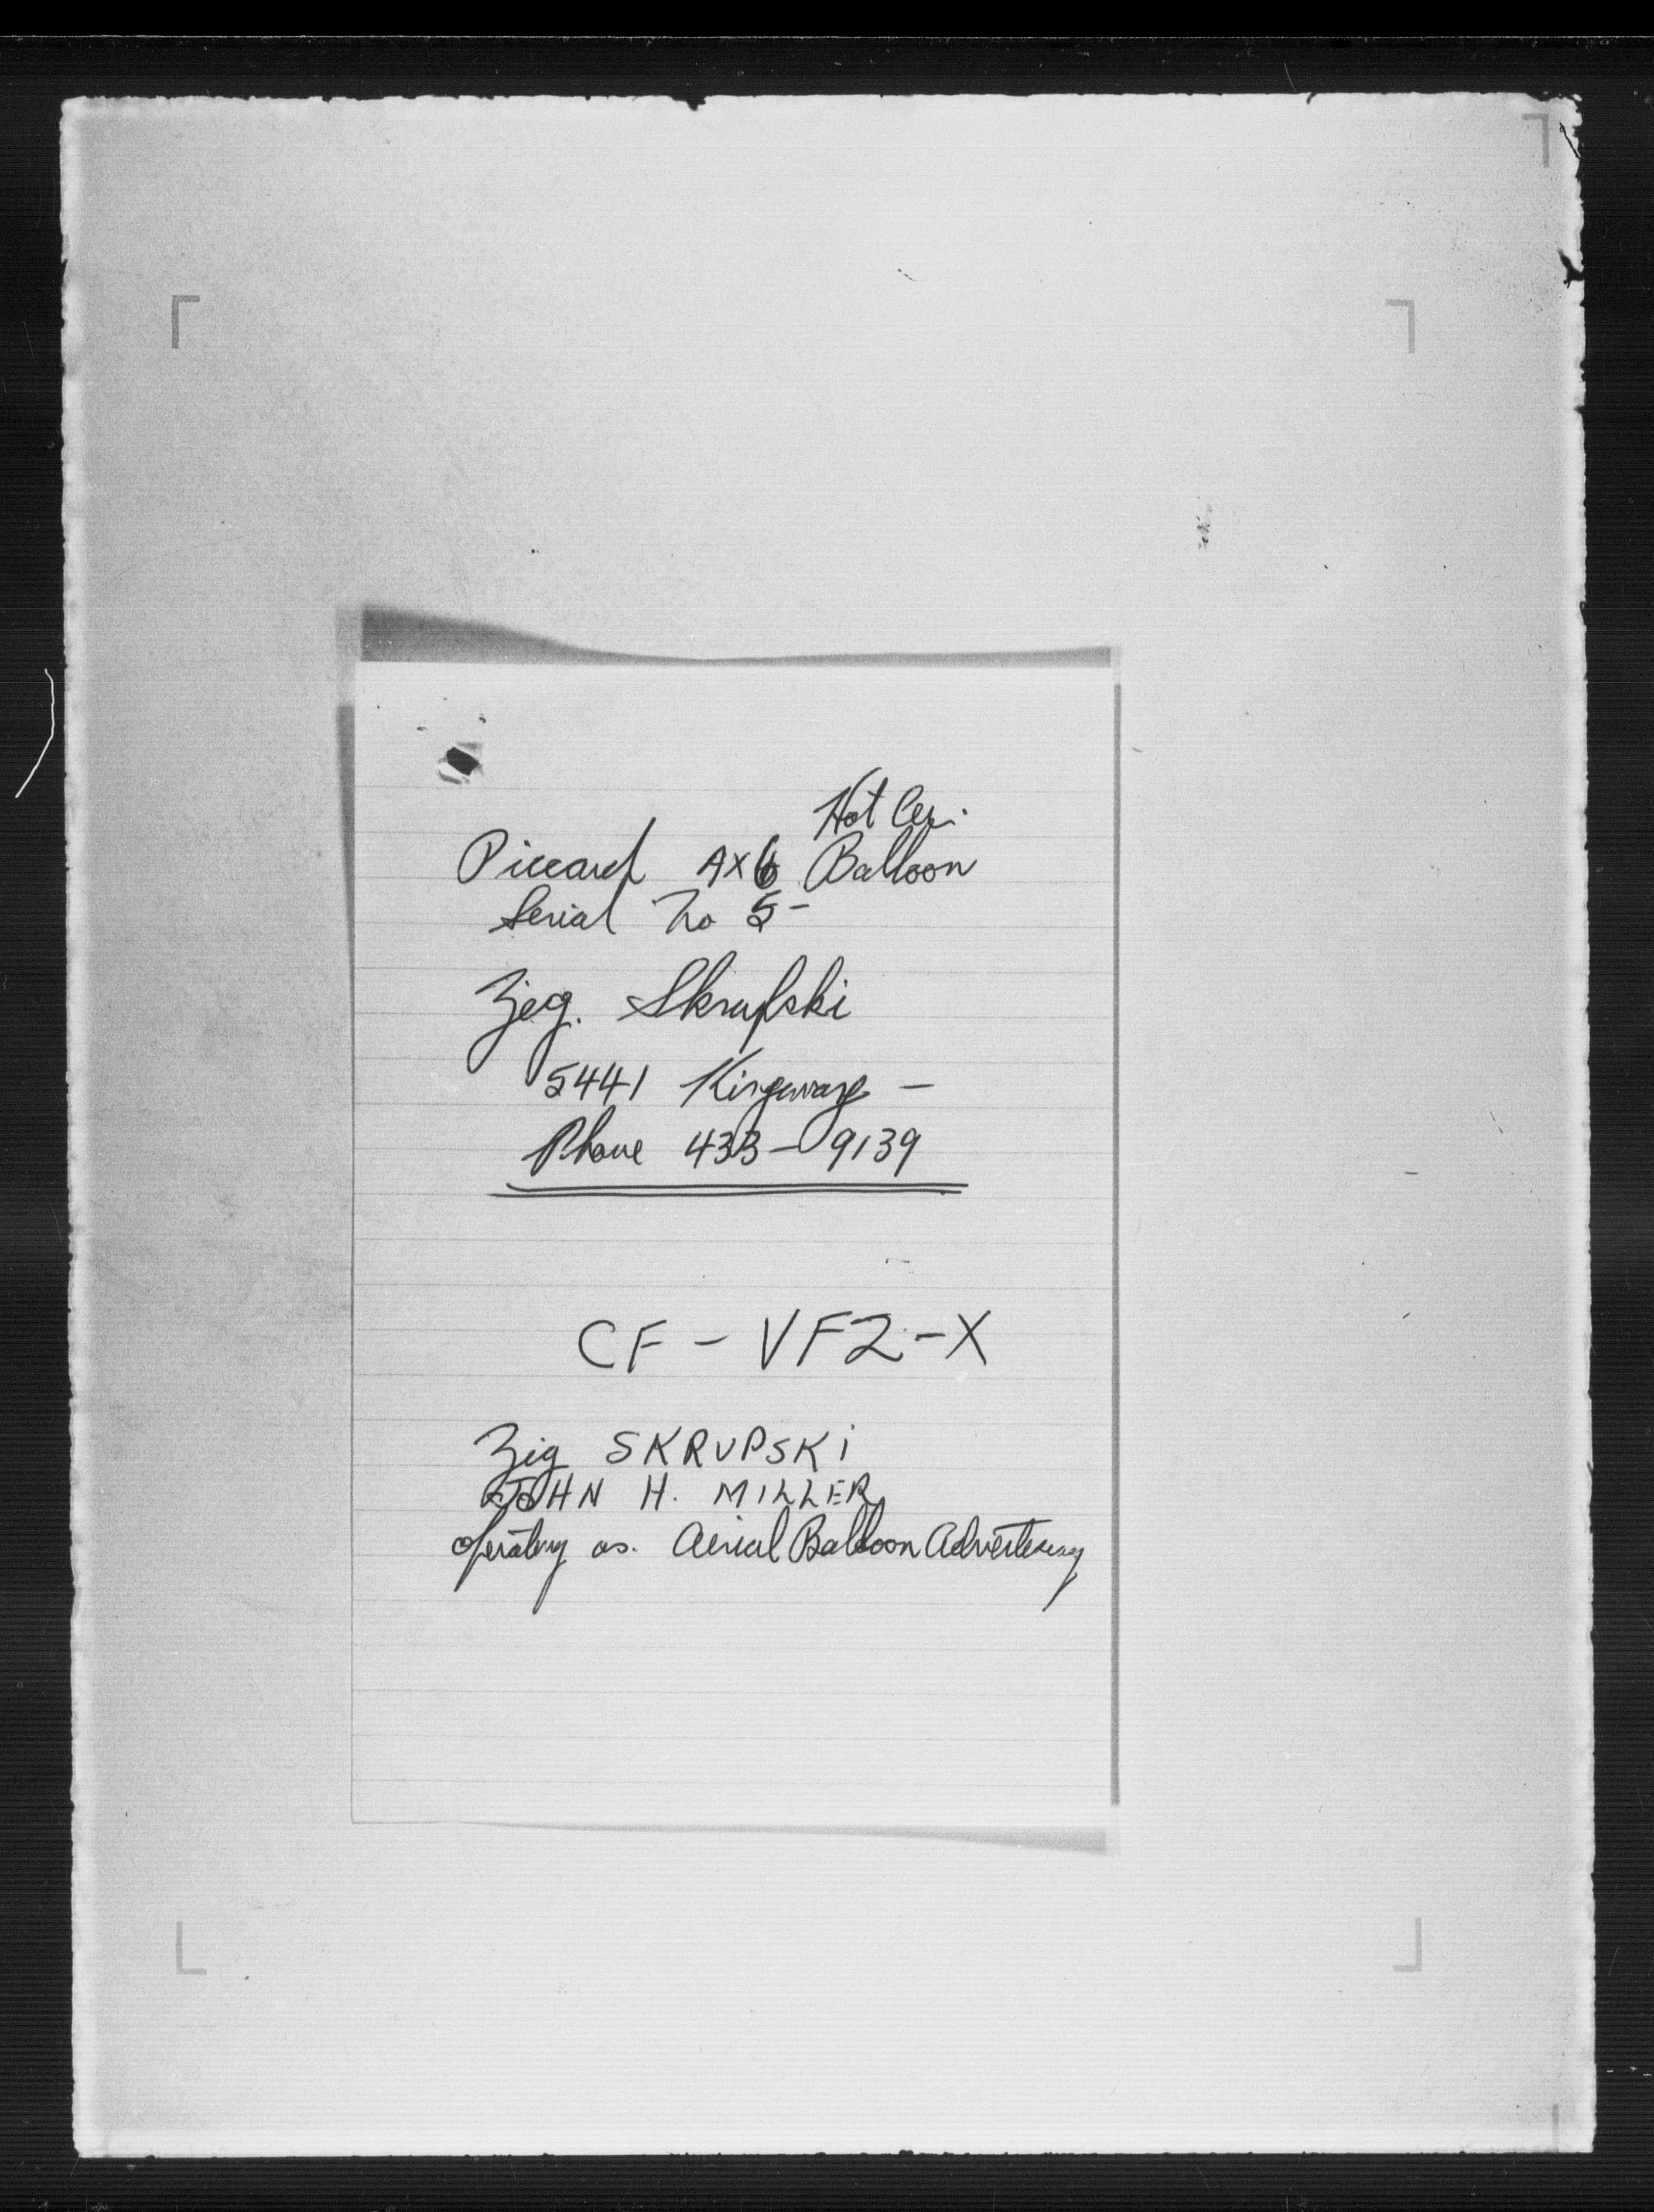 Hot Air.
Piccard AX6 Balloon
Serial No 5-
Zig. Skrupski
5441 Kingsway -
Phone 433-9139
CF - VFZ - X
Zig SKRUPSKi
JOHN H. MILLER
operating as. Aerial Balloon Advertising